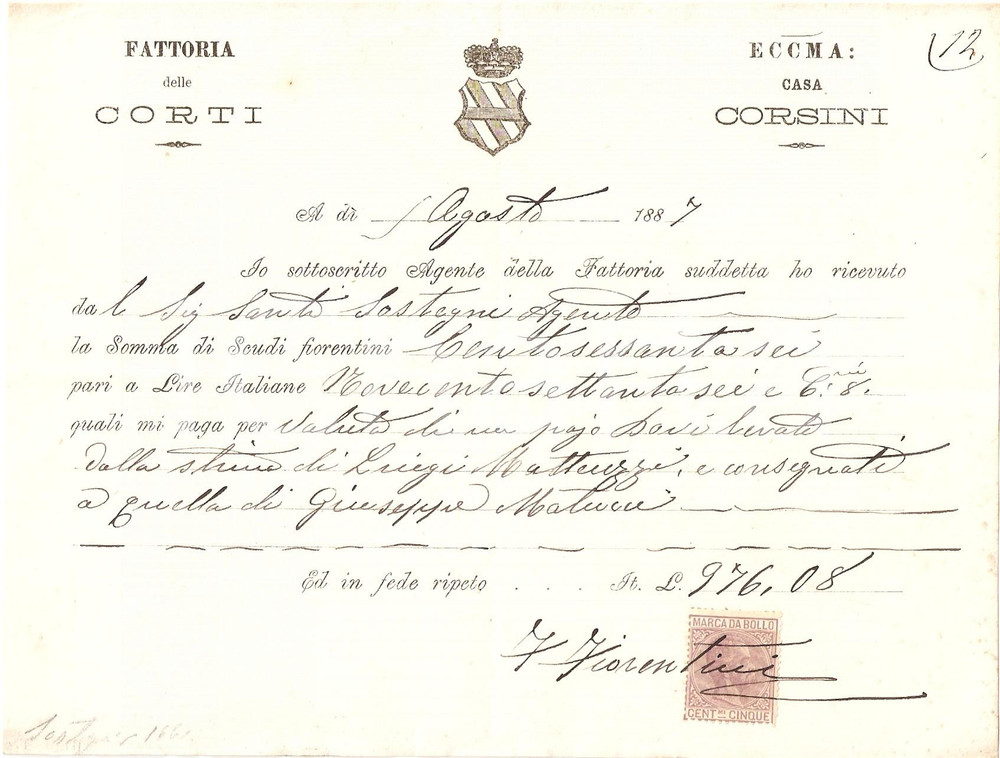 12
FATTORIA
delle
CORTI
ECCMA:
CASA
CORSINI
A dì 1 Agosto 1887
Io sottoscritto Agente della Fattoria suddetta ho ricevuto
dal Sig Santi Sostegni Agente
la Somma di Scudi fiorentini Centosessantasei
pari a Lire Italiane Novecentosettantasei e C.mi 8.
quali mi paga per valuta di un pajo Bovi levati
dalla stima di Luigi Matteuzzi, e consegnati
a quella di Giuseppe Matucci
Ed in fede ripeto . . . It. L. 976,08
MARCA DA BOLLO
Fiorentini
CENT.MI CINQUE